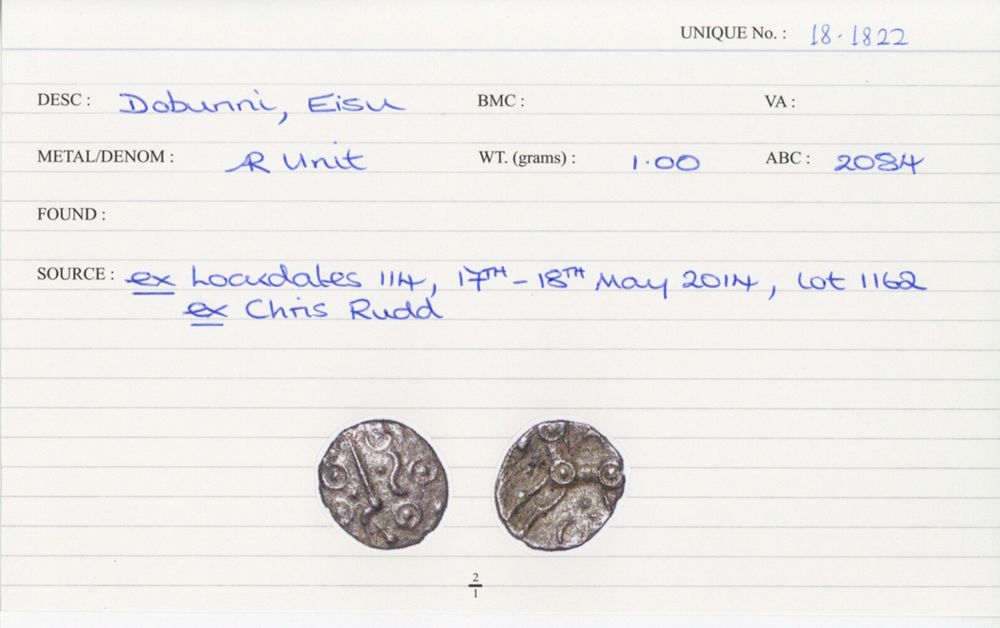 UNIQUE No. : 18-1822
DESC : Dobunni, Eisu BMC : VA :
METAL/DENOM : AR Unit WT. (grams) : 1.00 ABC : 2084
FOUND :
SOURCE : ex Lockdales 114, 17TH - 18TH May 2014, Lot 1162
ex Chris Rudd
2
1